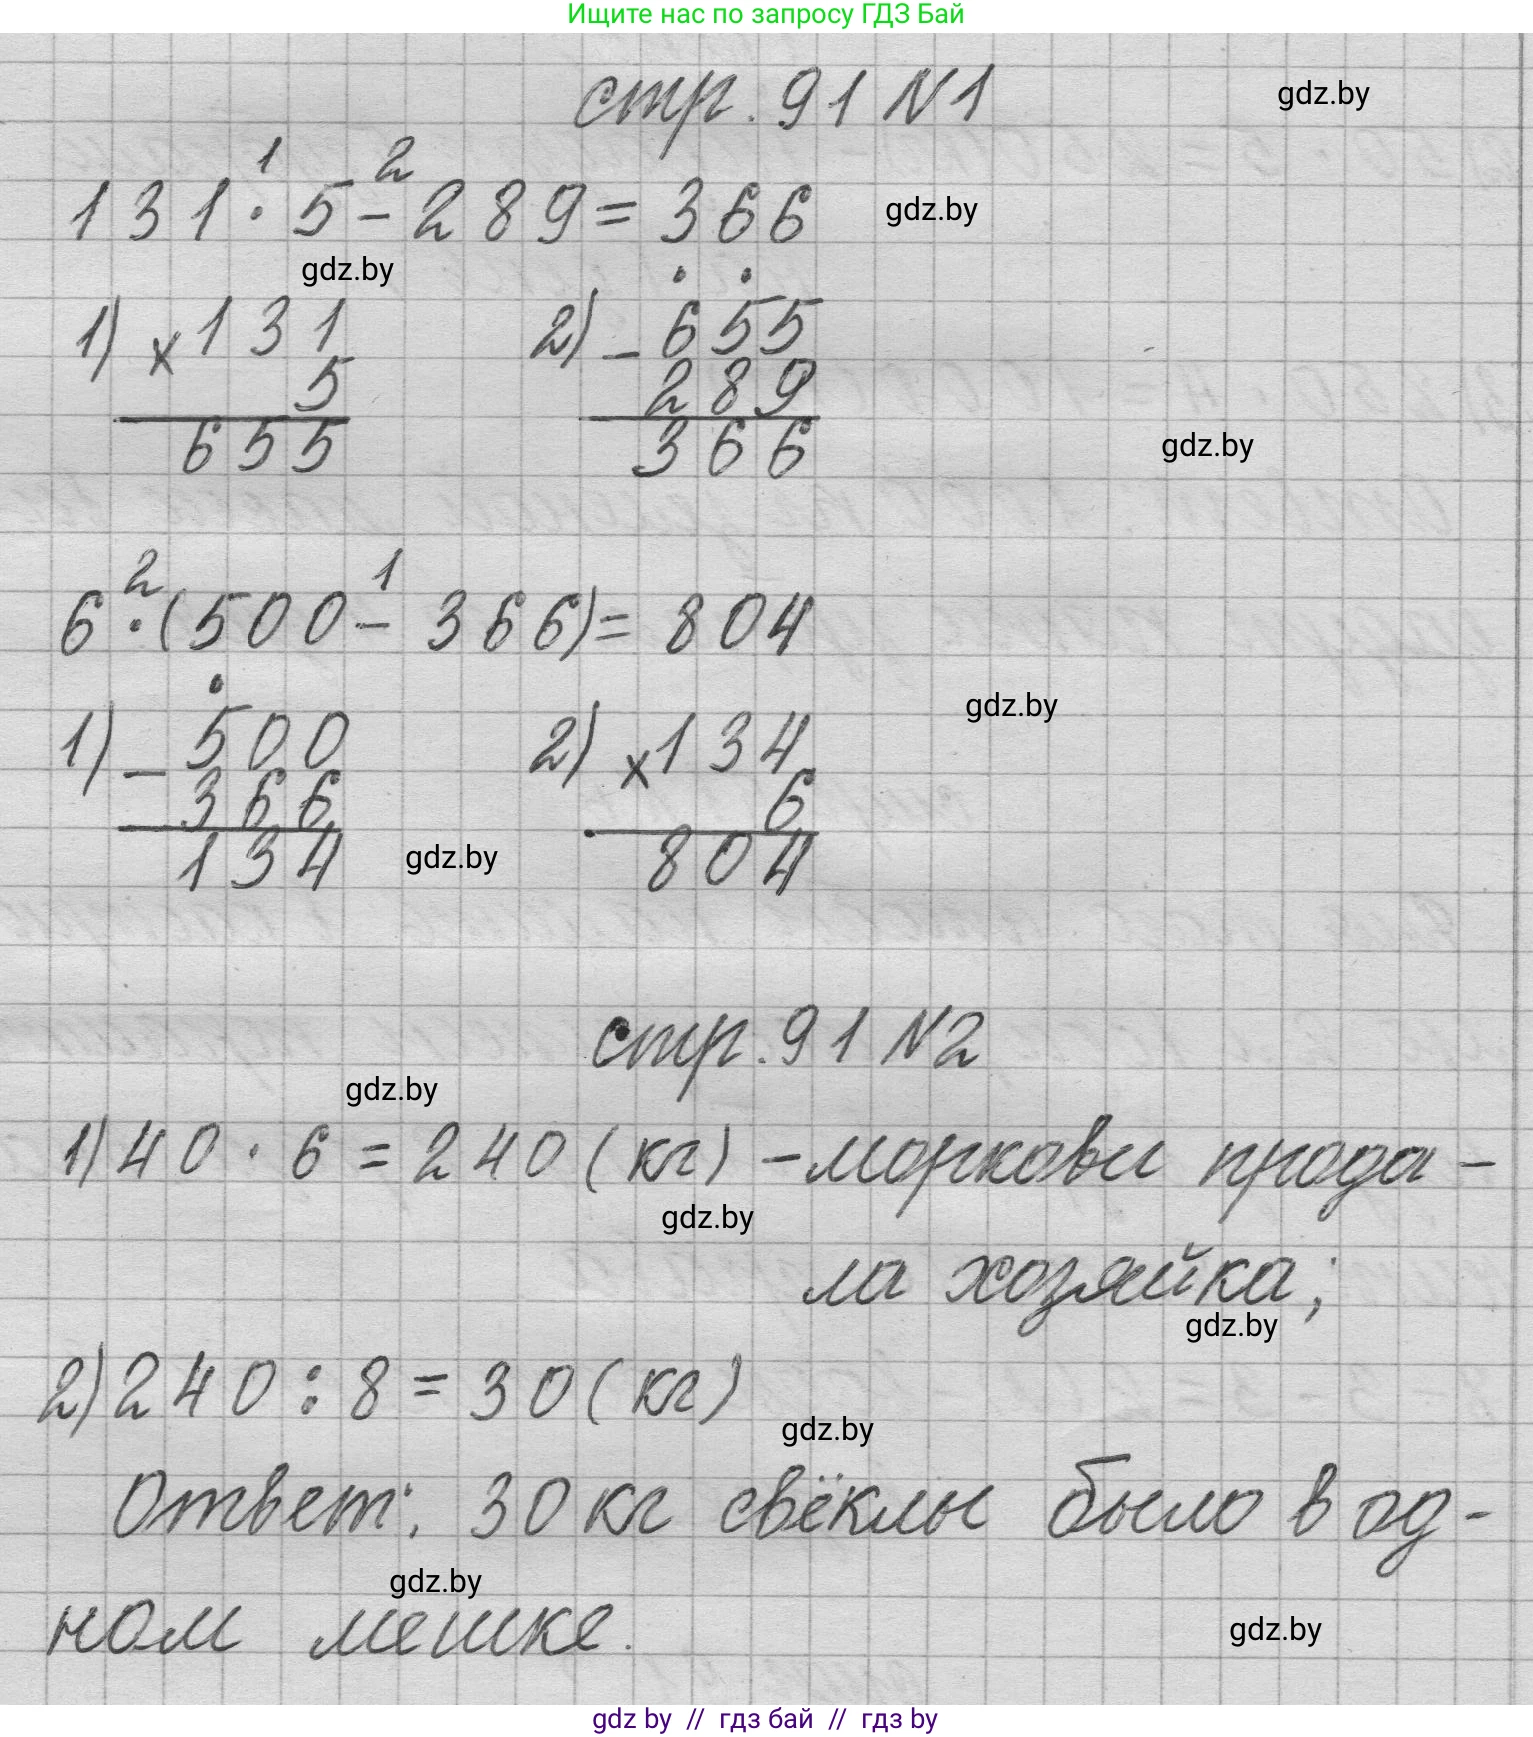 Ищите нас по запросу ГДЗ Бай
стр. 91 N1
gdz.by
1 2
131 · 5 - 289 = 366
gdz.by
gdz.by
1) × 131 2) - 655
5 289
655 366
gdz.by
2 1
6 · (500 - 366) = 804
gdz.by
1) - 500 2) × 134
366 6
134 804
gdz.by
стр. 91 N2
gdz.by
1) 40 · 6 = 240 (кг) - моркови прода-
gdz.by
ла хозяйка;
gdz.by
2) 240 : 8 = 30 (кг)
gdz.by
Ответ: 30 кг свёклы было в од-
gdz.by
ном мешке.
gdz.by
gdz by // гдз бай // гдз by